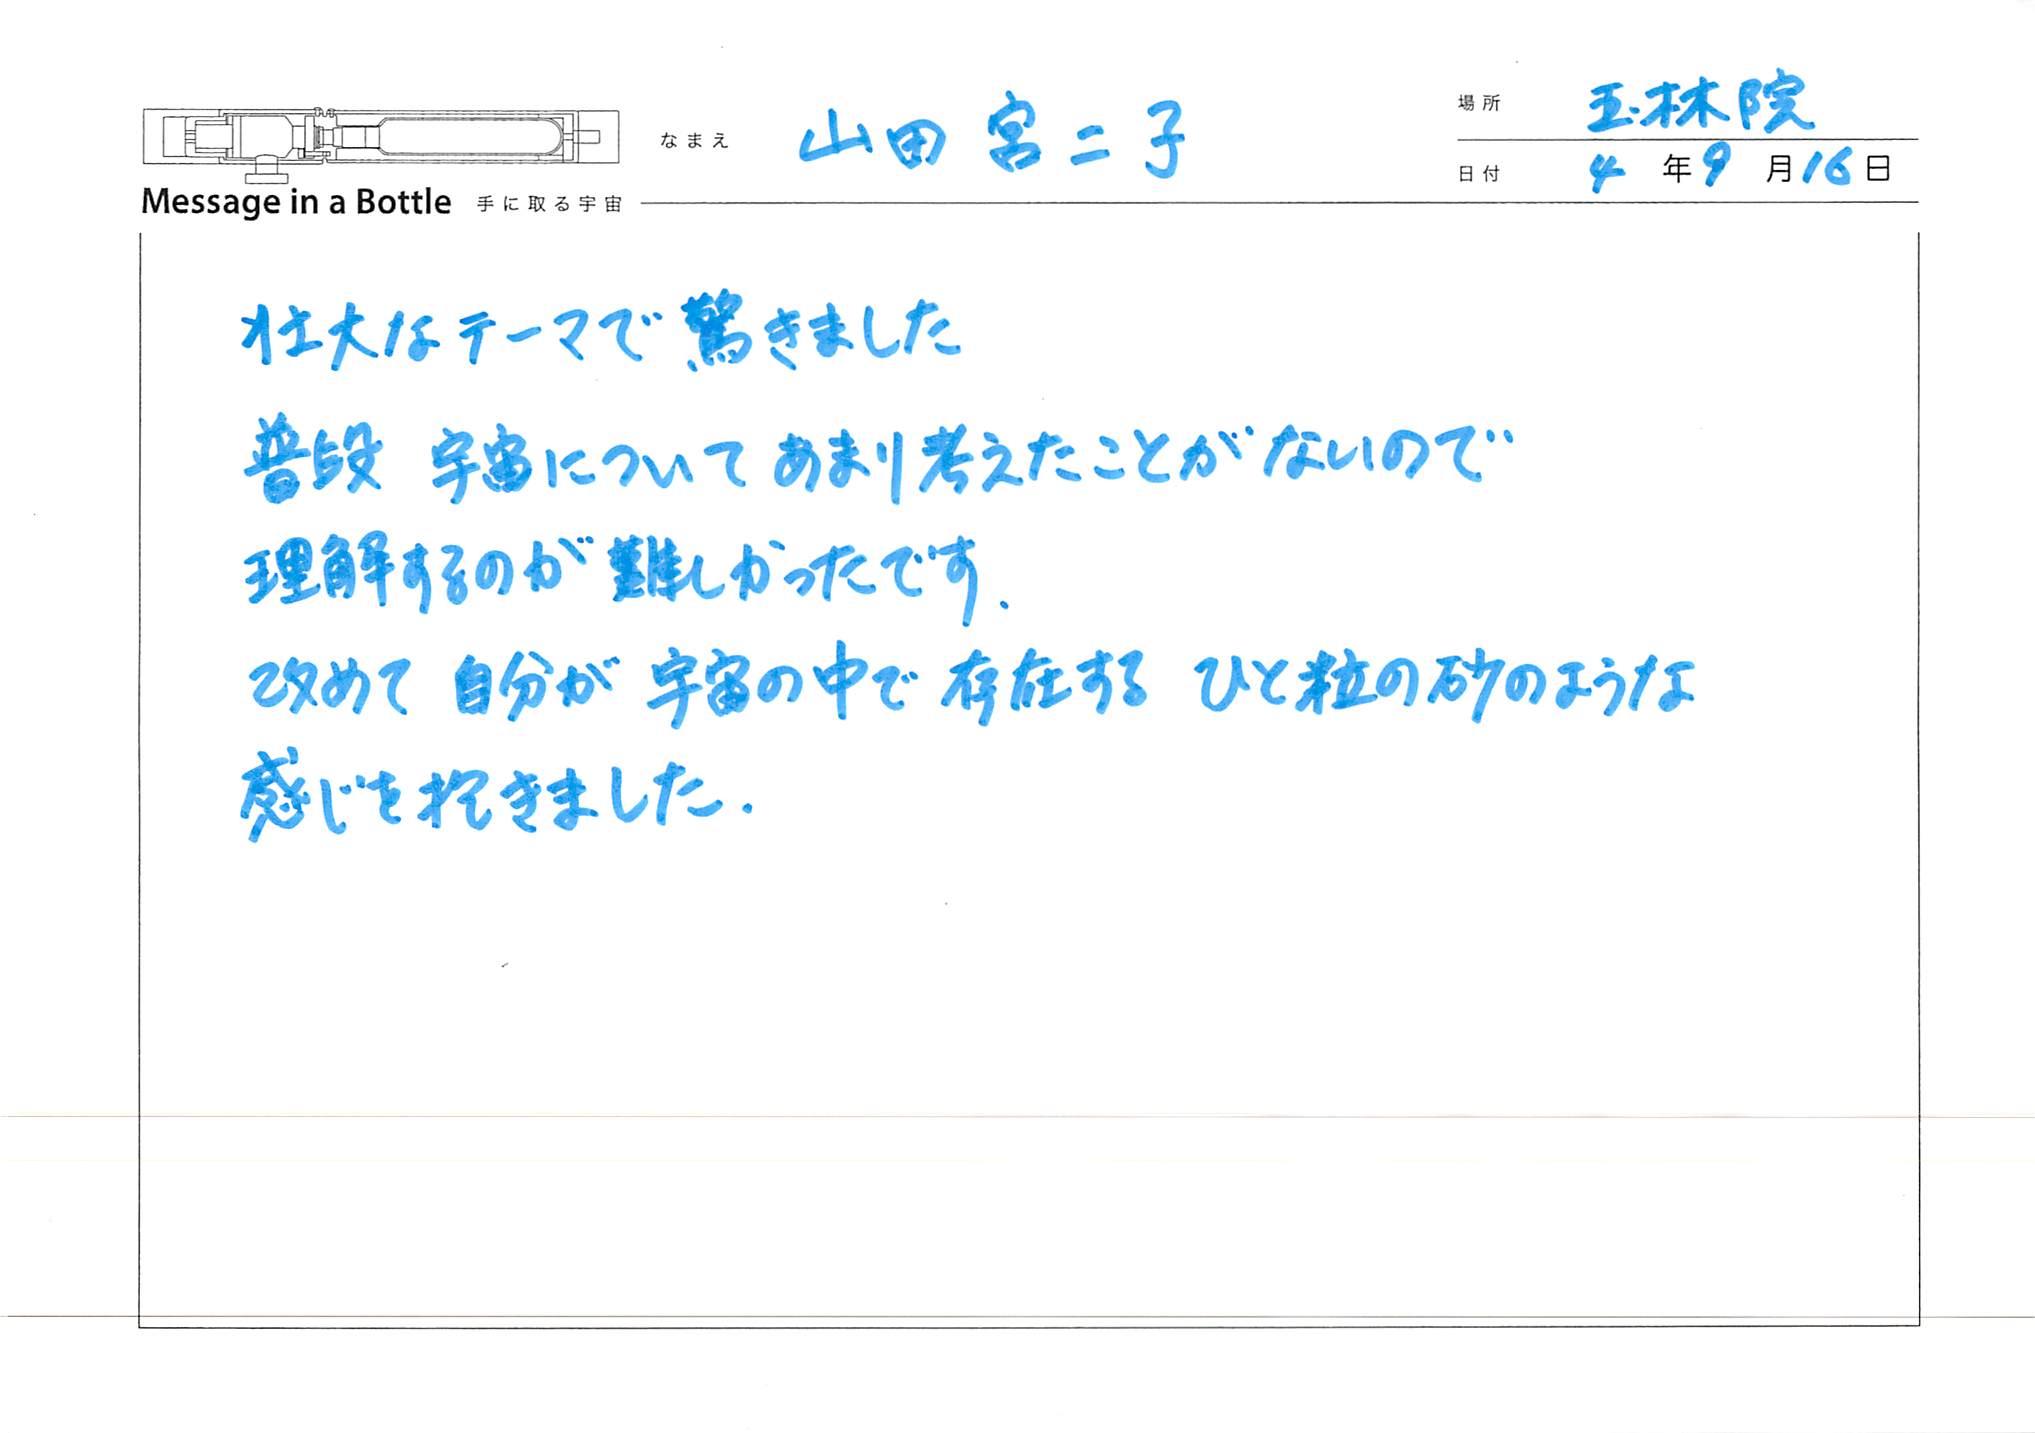 なまえ 山田 宮二子
場所 玉林院
日付 4年9月16日
Message in a Bottle 手に取る宇宙
壮大なテーマで驚きました
普段 宇宙についてあまり考えたことがないので
理解するのが難しかったです.
改めて 自分が 宇宙の中で 存在する ひと粒の砂のような
感じを抱きました.